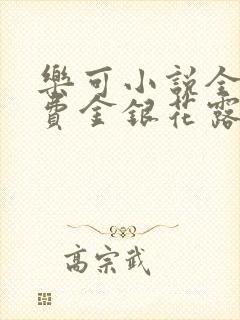 樂可小說全
費金銀花露
高宗武